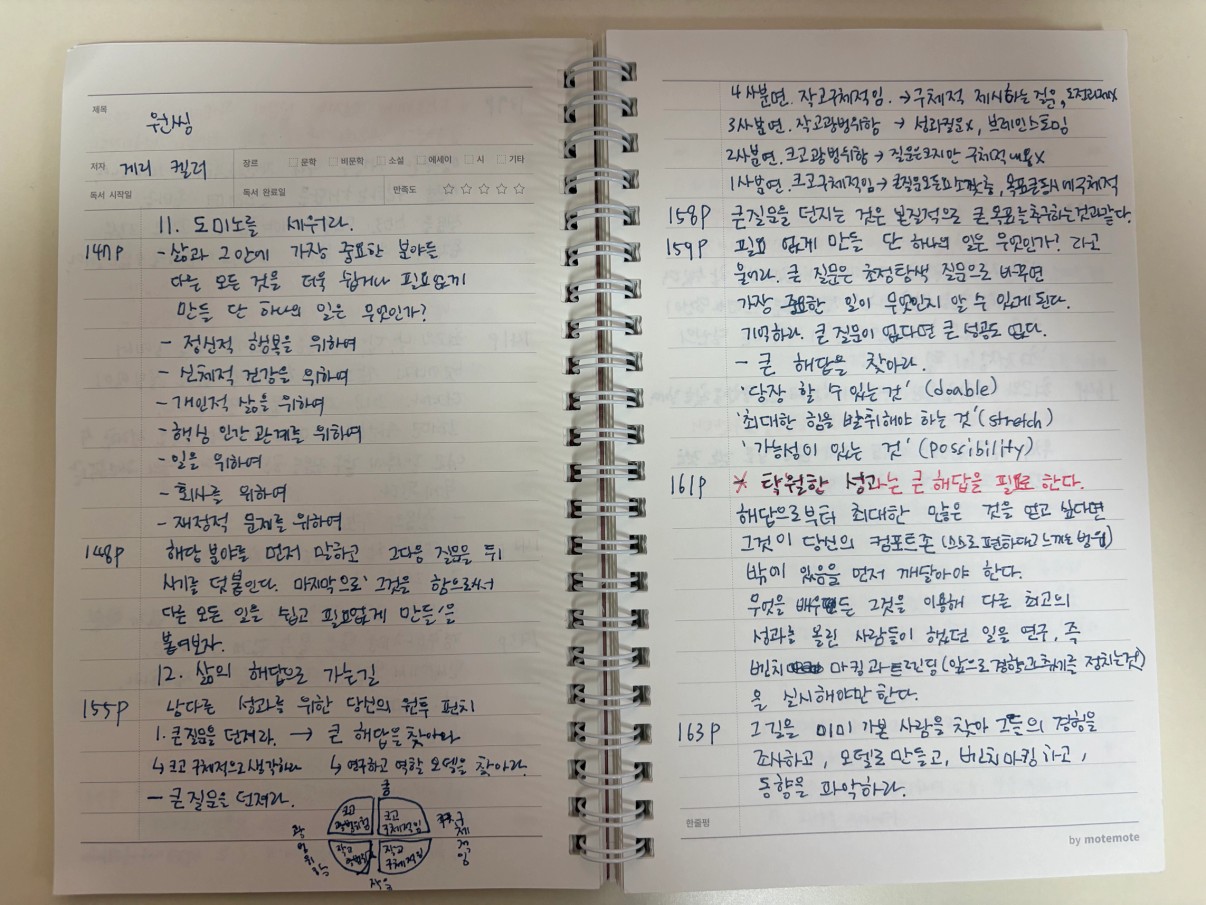 제목
원씽
저자 게리 켈러 장르 문학 비문학 소설 에세이 시 기타
독서 시작일 독서 완료일 만족도
11. 도미노를 세워라.
147p - 삶과 그 안에 가장 중요한 분야들
다른 모든 것을 더욱 쉽게나 필요없게
만들 단 하나의 일은 무엇인가?
- 정신적 행복을 위하여
- 신체적 건강을 위하여
- 개인적 삶을 위하여
- 핵심 인간관계를 위하여
- 일을 위하여
- 회사를 위하여
- 재정적 문제를 위하여
148p 해당 분야를 먼저 말하고 그다음 질문을 뒤
시기를 덧붙인다. 마지막으로 '그것을 함으로써
다른 모든 일을 쉽고 필요없게 만들'을
붙여보자.
12. 삶의 해답으로 가는길
155p 남다른 성과를 위한 당신의 원투 펀치
1. 큰질문을 던져라. → 큰 해답을 찾아라
↳ 크고 구체적으로 생각하라 ↳ 연구하고 역할 모델을 찾아라.
- 큰질문을 던져라.
큼
크고 광범위함
크고 구체적임
광범위함
구체적임
작고 광범위
작고 구체적임
작음
4사분면. 작고구체적임. → 구체적 제시하는 것은, 도전과제x
3사분면. 작고광범위함 → 성과질문x, 브레인스토밍
2사분면. 크고광범위함 → 질문은크지만 구체적내용x
1사분면. 크고구체적임 → 큰질문모든요소갖춤, 목표큰동시에구체적
158p 큰질문을 던지는 것은 본질적으로 큰 목표를추구하는것과같다.
159p 필요 없게 만들 단 하나의 일은 무엇인가? 라고
물어라. 큰 질문은 초점탐색 질문으로 바꾸면
가장 중요한 일이 무엇인지 알 수 있게 된다.
기억하라. 큰 질문이 없다면 큰 성공도 없다.
- 큰 해답을 찾아라.
'당장 할 수 있는 것' (doable)
'최대한 힘을 발휘해야 하는 것' (stretch)
'가능성이 있는 것' (possibility)
161p * 탁월한 성과는 큰 해답을 필요로 한다.
해답으로부터 최대한 많은 것을 얻고 싶다면
그것이 당신의 컴포트존 (스스로 편하다고 느끼는 범위)
밖에 있음을 먼저 깨달아야 한다.
무엇을 배우든 그것을 이용해 다른 최고의
성과를 올린 사람들이 했던 일을 연구, 즉
벤치 마킹과 트렌딩 (앞으로 경향과 추세를 점치는것)
을 실시해야만 한다.
163p 그 길을 이미 가본 사람을 찾아 그들의 경험을
조사하고, 모델로 만들고, 벤치마킹 하고,
동향을 파악하라.
한줄평
by motemote